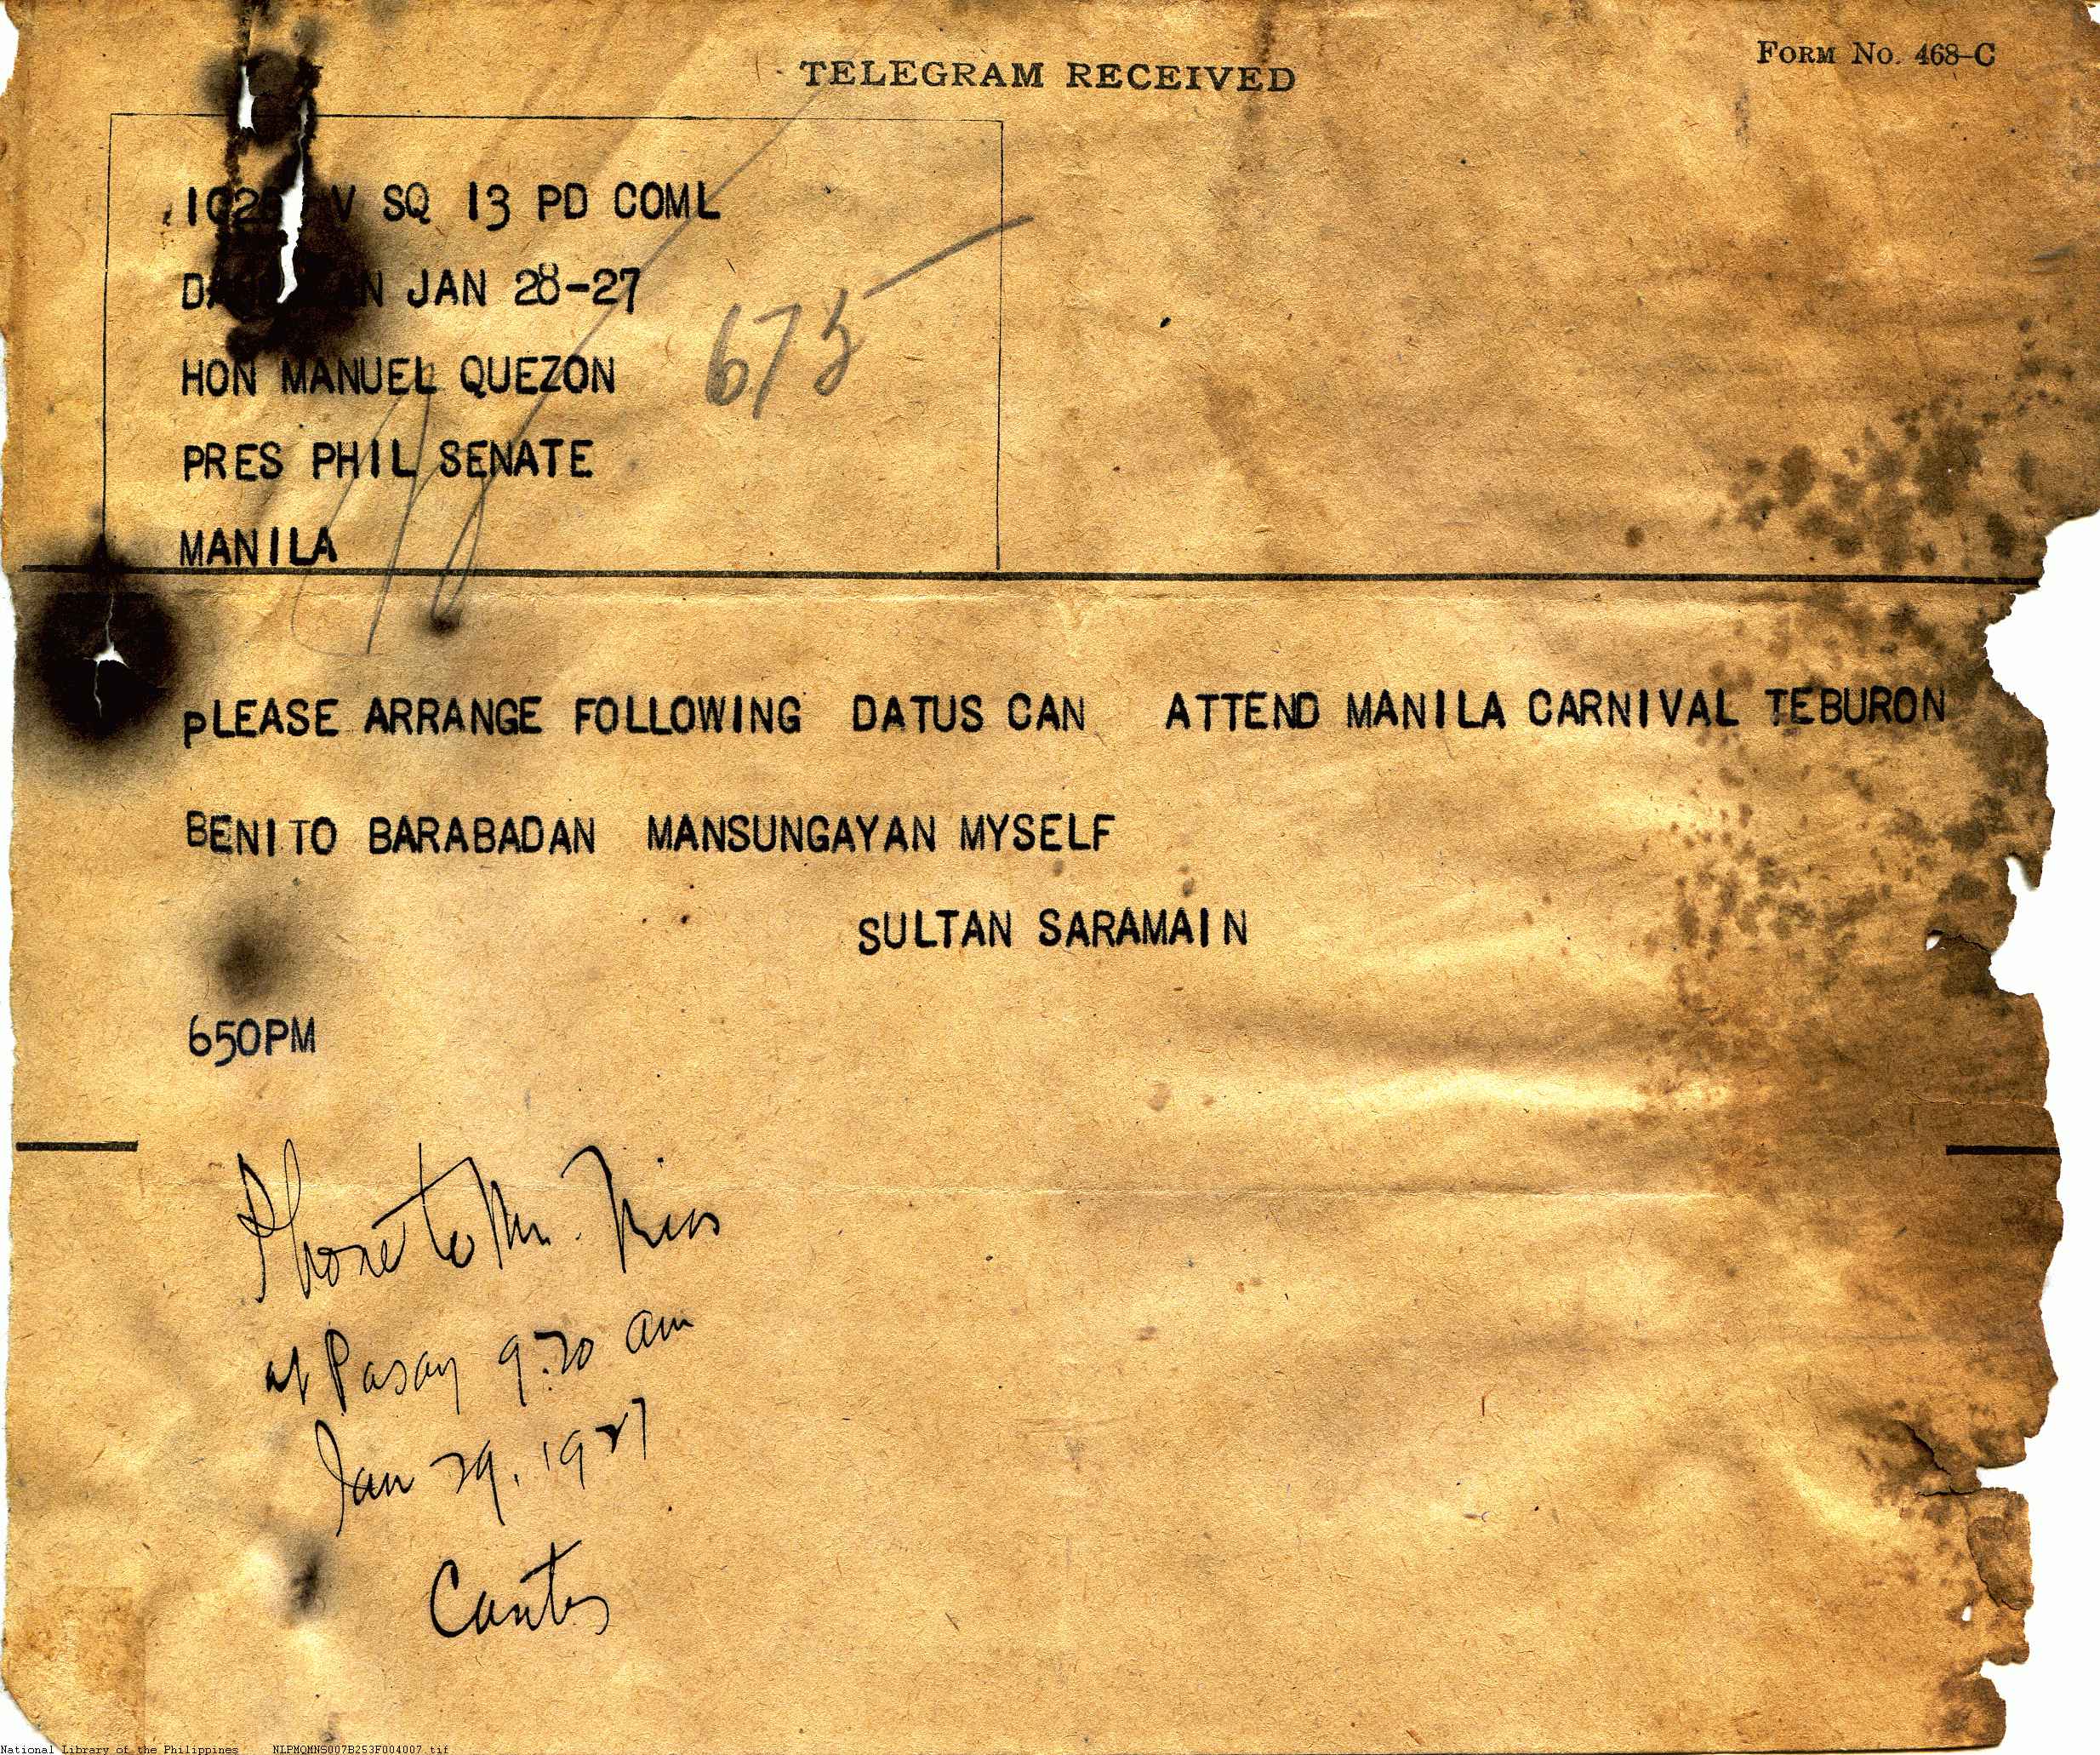 FORM NO. 468-C
TELEGRAM RECEIVED
SQ 13 PD COML
JAN 28-27
HON MANUEL QUEZON
PRES PHIL SENATE
MANILA
675
PLEASE ARRANGE FOLLOWING DATUS CAN ATTEND MANILA CARNIVAL TEBURON
BENITO BARABADAN MANSUNGAYAN MYSELF
SULTAN SARAMAIN
650PM
Phone to Mr.
at Pasay am
Jan 29, 1927
National Library of the Philippines NLPMQMNS007B253F004007.tif